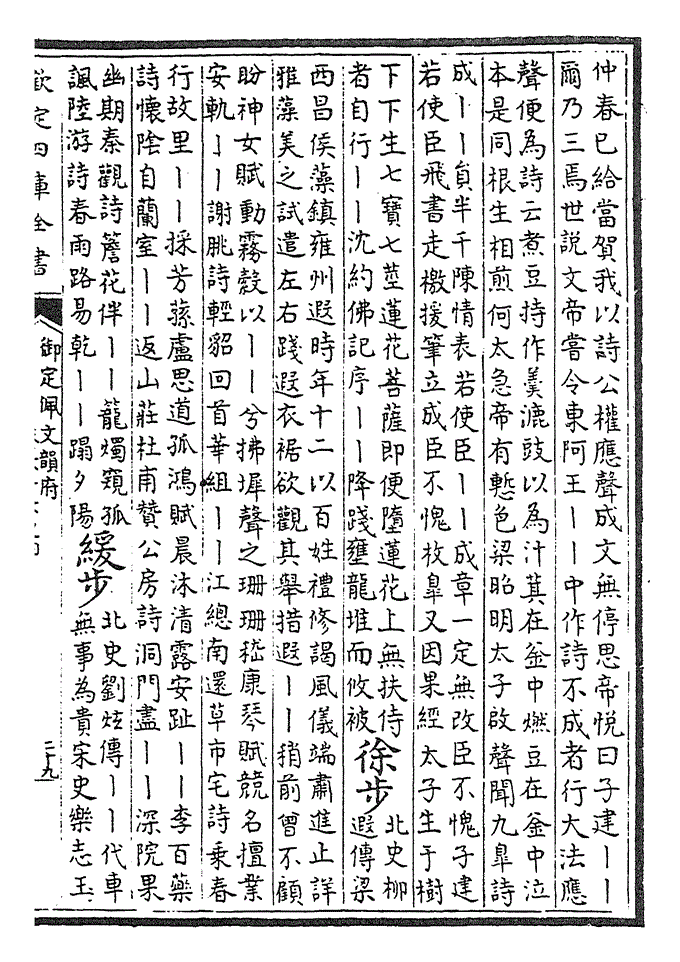 仲春已給當賀我以詩公權應聲成文無停思帝悅曰子建丨丨
爾乃三焉世説文帝嘗令東阿王丨丨中作詩不成者行大法應
聲便為詩云煮豆持作羹漉豉以為汁萁在釜中燃豆在釜中泣
本是同根生相煎何太急帝有慙色梁昭明太子啟聲聞九臯詩
成丨丨貟半千陳情表若使臣丨丨成章一定無改臣不愧子建
若使臣飛書走檄援筆立成臣不愧枚臯又因果經太子生于樹
下下生七寶七莖蓮花菩薩即便墮蓮花上無扶侍
者自行丨丨沈約佛記序丨丨降踐壅龍堆而攸被
徐步
北史柳
遐傳梁
西昌侯藻鎮雍州遐時年十二以百姓禮修謁風儀端肅進止詳
雅藻美之試遣左右踐遐衣裾欲觀其舉措遐丨丨稍前曾不顧
盼神女賦動霧縠以丨丨兮拂墀聲之珊珊嵇康琴賦競名擅業
安軌丨丨謝朓詩輕貂回首華組丨丨江總南還草市宅詩乗春
行故里丨丨採芳蓀盧思道孤鴻賦晨沐清露安趾丨丨李百藥
詩懷陰自蘭室丨丨返山莊杜甫贊公房詩洞門盡丨丨深院果
幽期秦觀詩簷花伴丨丨籠燭窺孤
諷陸游詩春雨路易乾丨丨蹋夕陽
緩步
北史劉炫傳丨丨代車
無事為貴宋史樂志玉
欽定四庫全書
御定佩文韻府
二十九